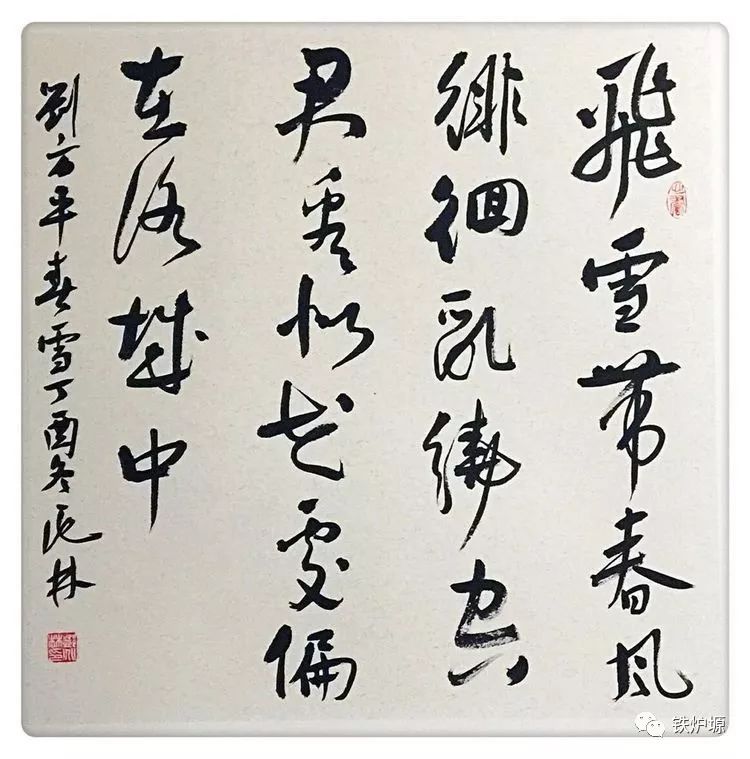 飛雪带春風
徘徊乱繞空
君看似花處偏
在洛城中
劉方平春雪丁酉冬林
铁炉塬